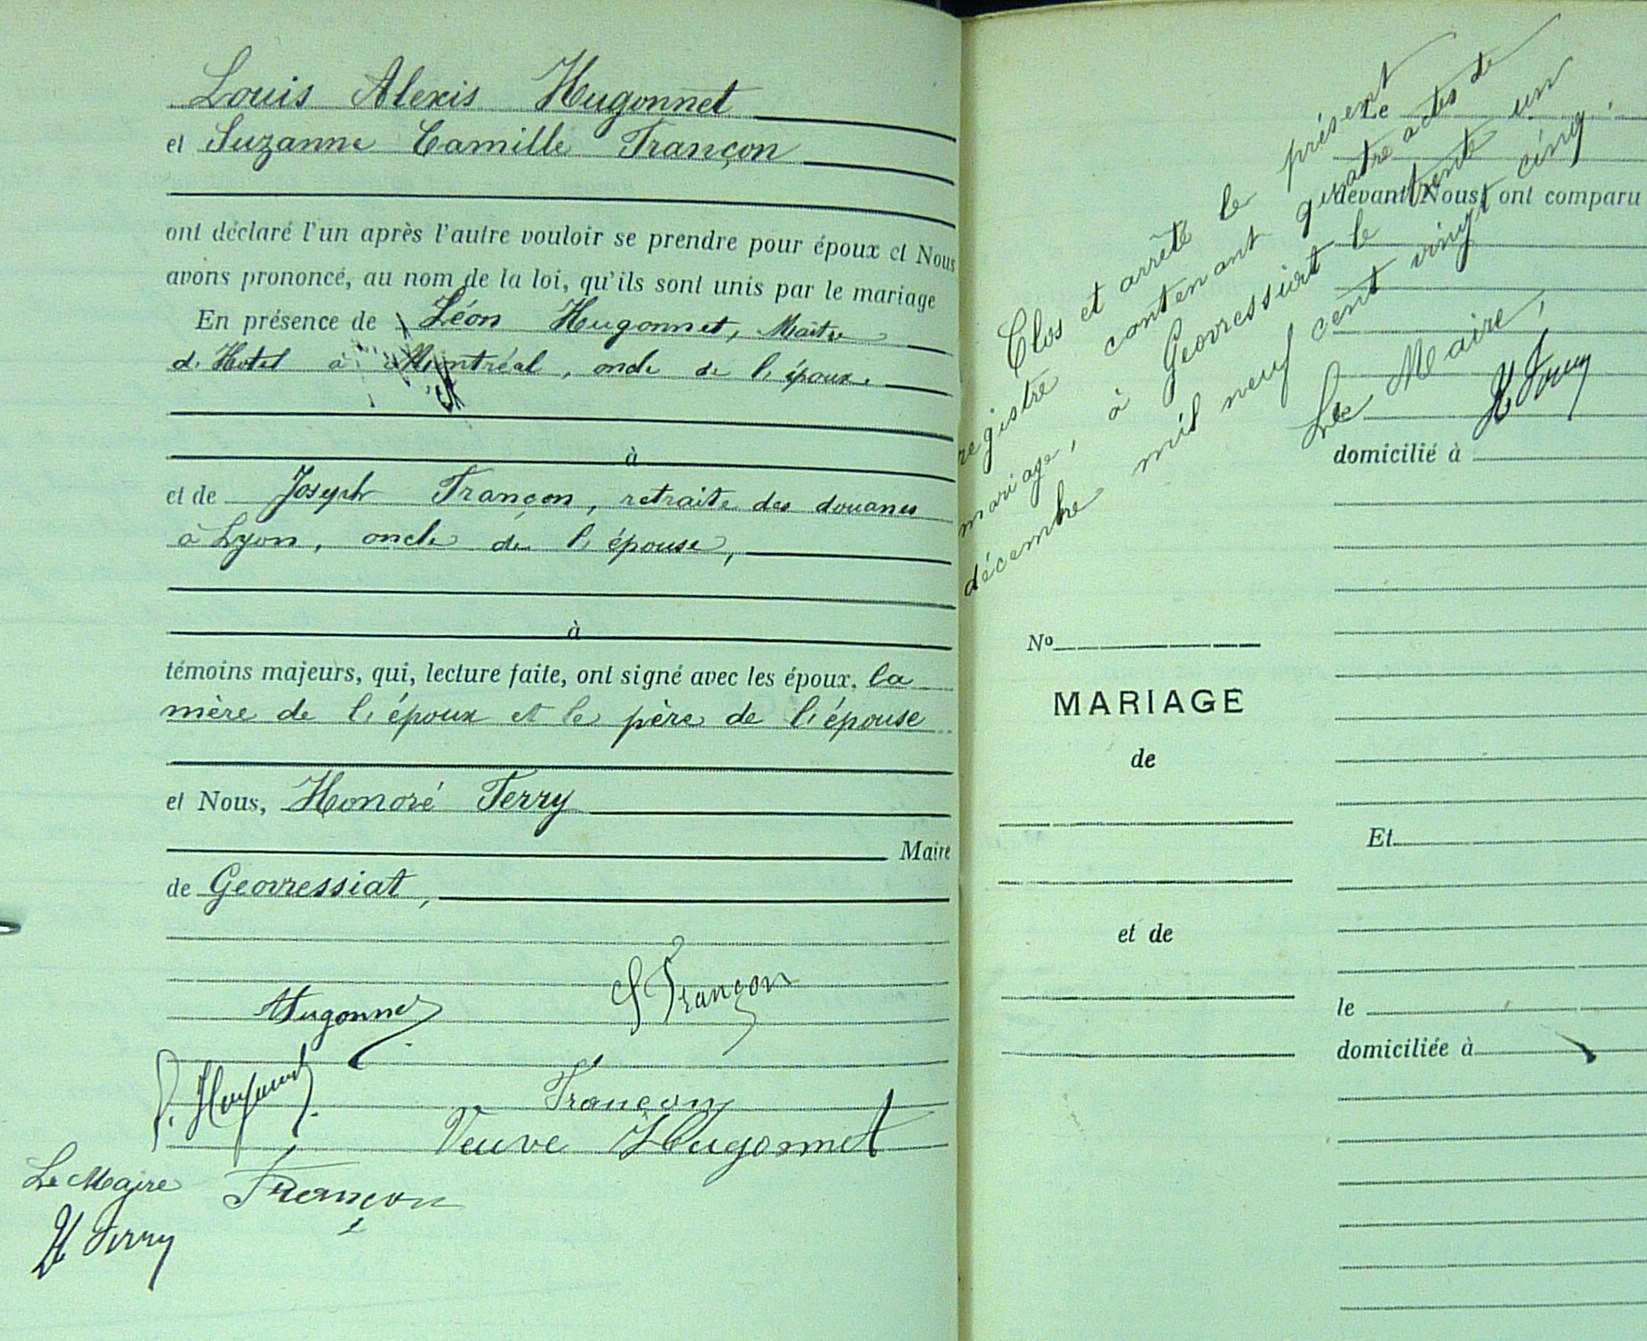 Louis Alexis Hugonnet
et Suzanne Camille Françon
ont déclaré l'un après l'autre vouloir se prendre pour époux et Nous
avons prononcé, au nom de la loi, qu'ils sont unis par le mariage
En présence de Léon Hugonnet, Maître
d'Hotel à Montréal, oncle de l'époux.
à
et de Joseph Françon, retraité des douanes
à Lyon, oncle de l'épouse,
à
témoins majeurs, qui, lecture faite, ont signé avec les époux, la
mère de l'époux et le père de l'épouse
et Nous, Honoré Ferry
Maire
de Geovressiat,
Hugonnet
S Françon
Françon
Veuve Hugonnet
Le Maire
Françon
H Ferry
Clos et arrêté le présent
registre contenant quatre actes de
mariage, à Geovressiat le trente un
décembre mil neuf cent vingt cinq.
Le Maire,
H Ferry
No
MARIAGE
de
et de
Le
devant Nous ont comparu
domicilié à
Et
le
domiciliée à